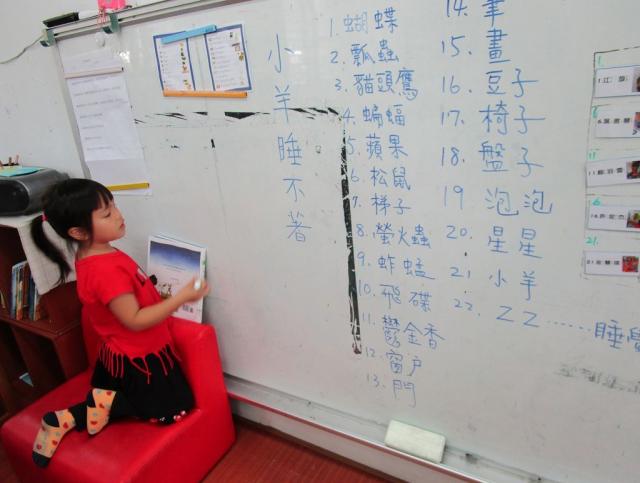 小羊睡不著
1. 蝴蝶
2. 瓢蟲
3. 貓頭鷹
4. 蝙蝠
5. 蘋果
6. 松鼠
7. 梯子
8. 螢火蟲
9. 蚱蜢
10. 飛碟
11. 鬱金香
12. 窗戶
13. 門
14. 筆
15. 畫
16. 豆子
17. 椅子
18. 盤子
19 泡泡
20. 星星
21. 小羊
22. ZZ......睡覺